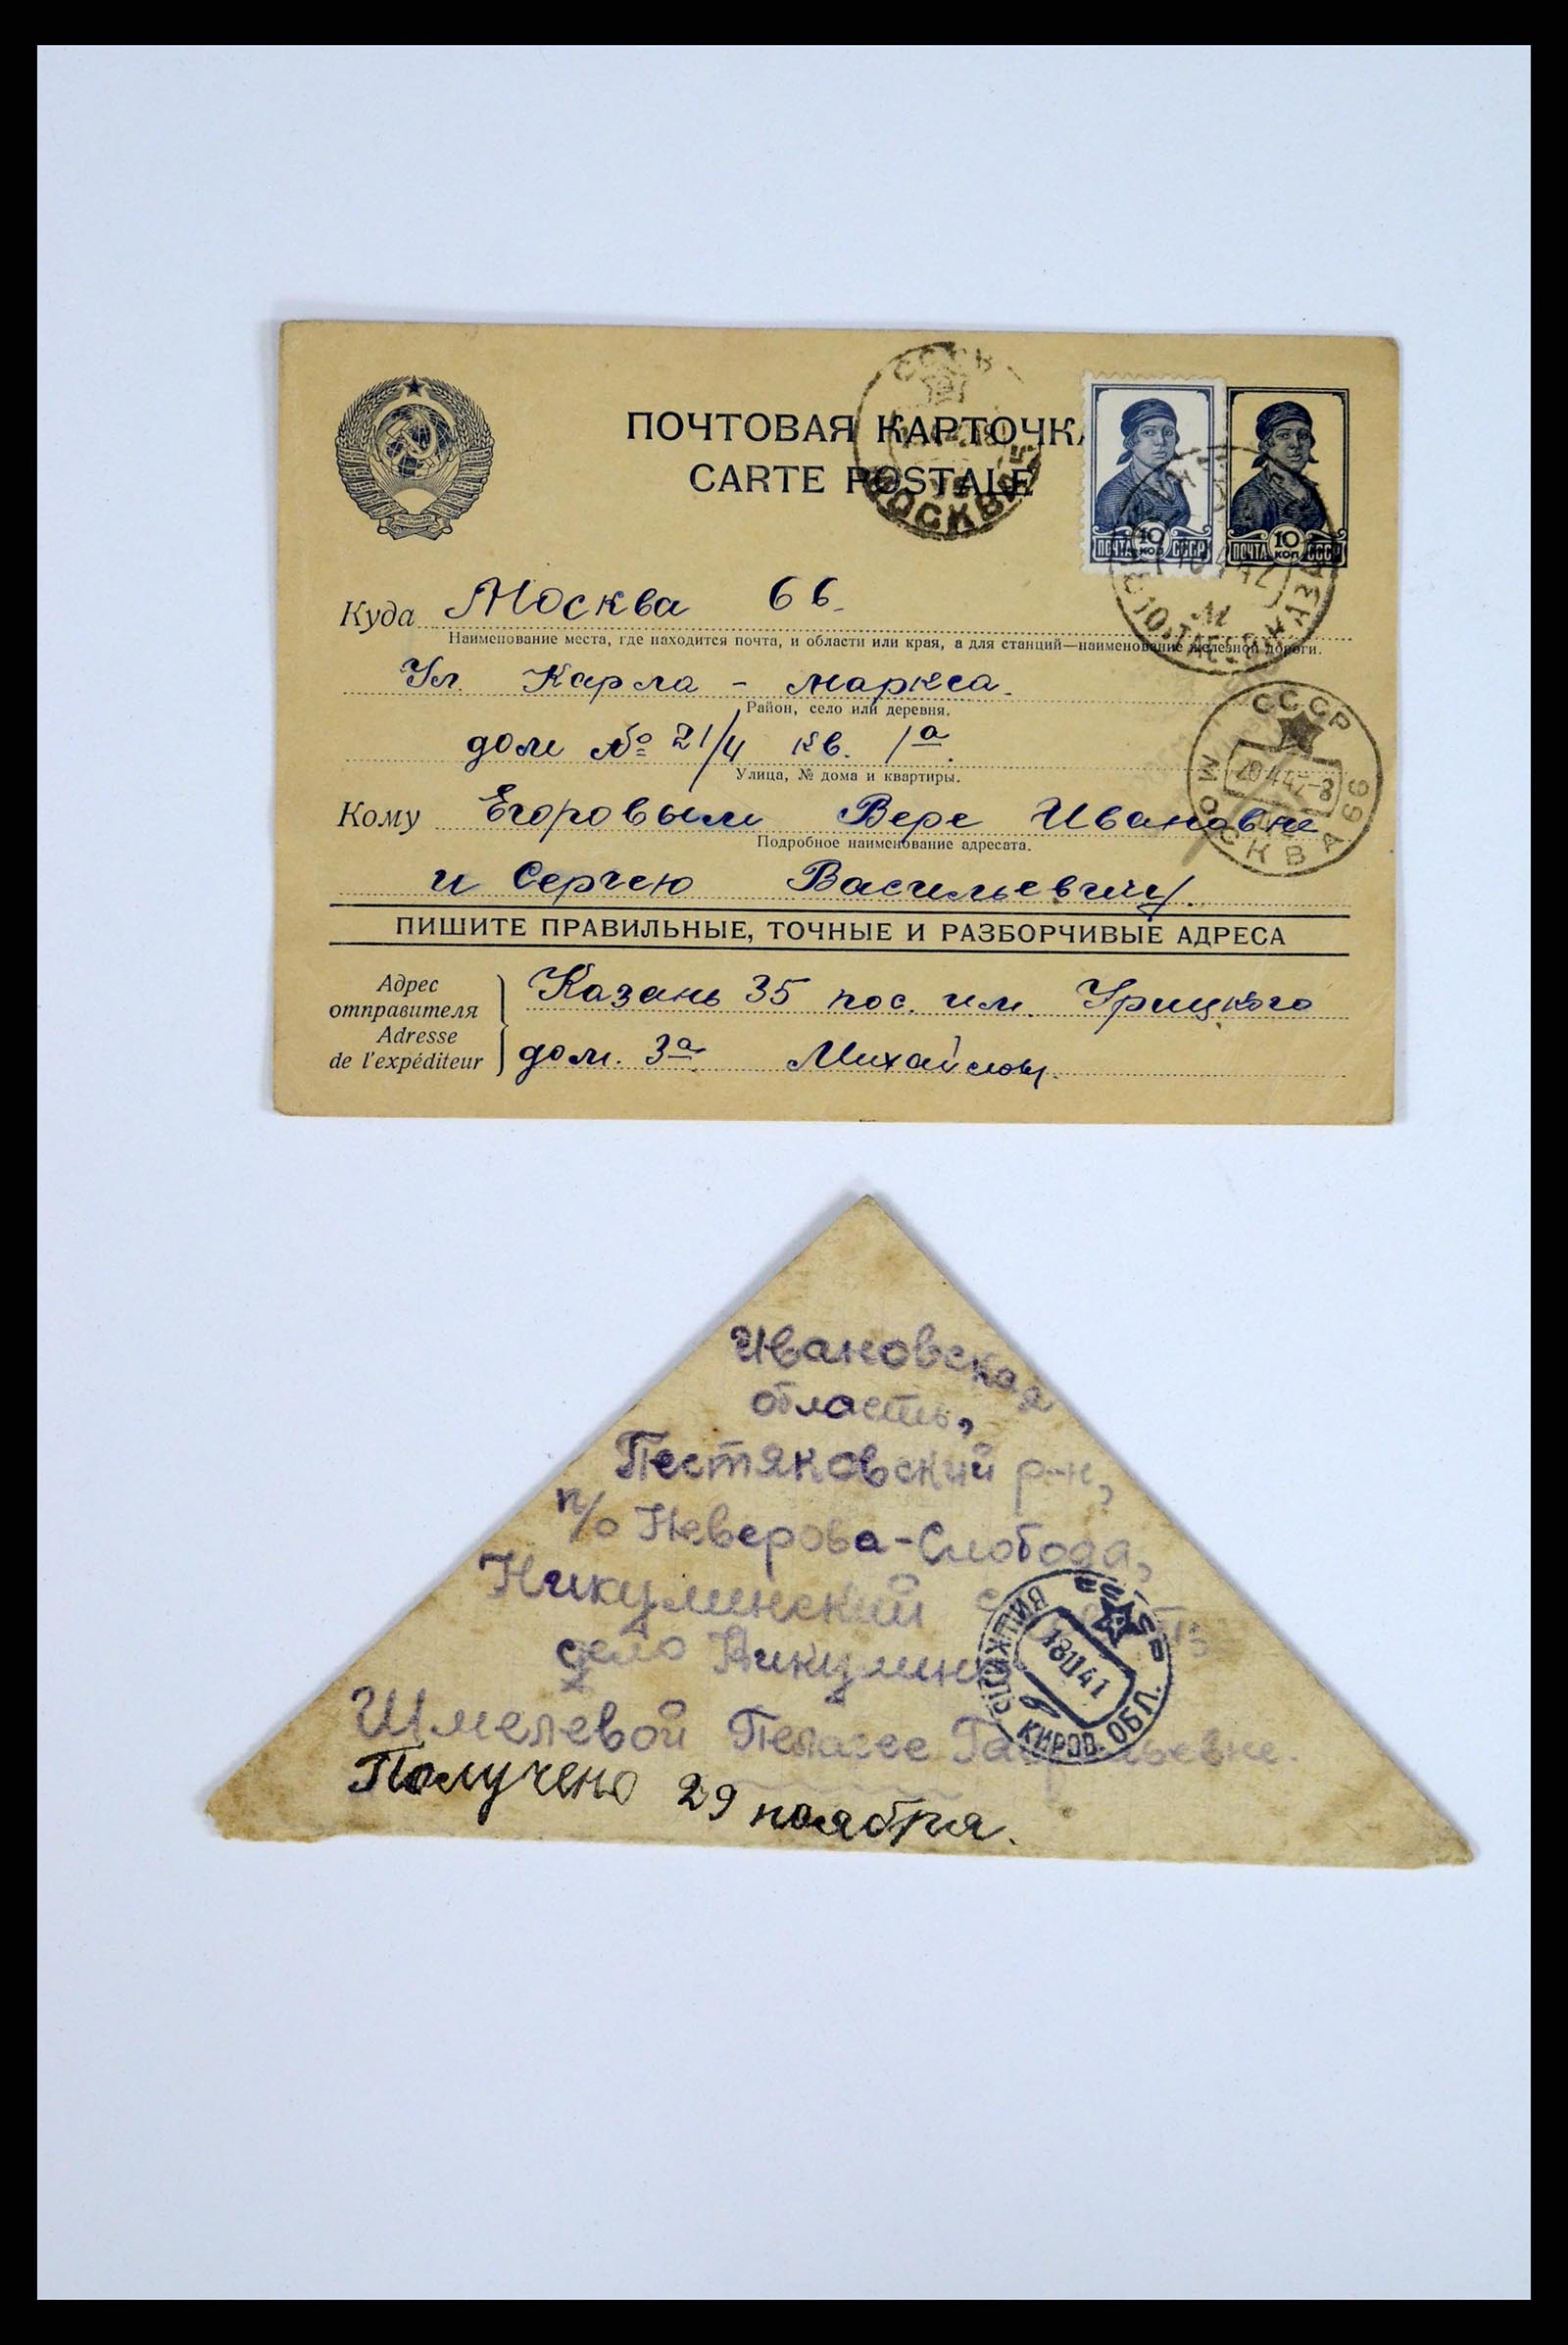 ПОЧТОВАЯ КАРТОЧКА
CARTE POSTALE
СССР
МОСКВА
ПОЧТА 10 КОП СССР
ПОЧТА 10 КОП. СССР
Куда Москва 66.
Наименование места, где находится почта, и области или края, а для станций—наименование железной дороги.
Ул. Карла - Маркса.
Район, село или деревня.
дом № 21/4 кв. 1а.
Улица, № дома и квартиры.
СССР
20.4.42-8
МОСКВА 66
Кому Егоровым Вере Ивановне
Подробное наименование адресата.
и Сергею Васильевичу.
ПИШИТЕ ПРАВИЛЬНЫЕ, ТОЧНЫЕ И РАЗБОРЧИВЫЕ АДРЕСА
Адрес
отправителя
Adresse
de l'expéditeur
Казань 35 пос. им. Урицкого
дом. 3а
Ивановская
область,
Пестяковский р-н,
п/о Неверова-Слобода,
Никулинский
село Никулино
СССР
18.11.41
КИРОВ. ОБЛ.
Шмелевой Пелагее
Получено 29 ноября.